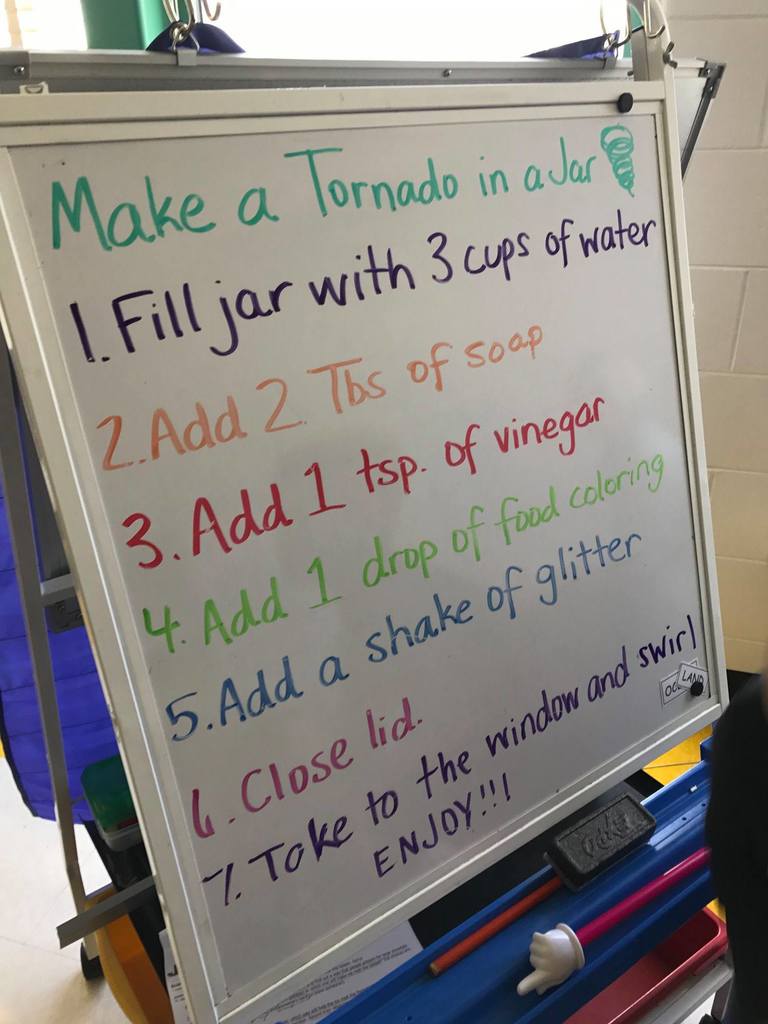 Make a Tornado in a Jar
1. Fill jar with 3 cups of water
2. Add 2 Tbs of soap
3. Add 1 tsp. of vinegar
4. Add 1 drop of food coloring
5. Add a shake of glitter
6. Close lid.
7. Take to the window and swirl
ENJOY!!!
LAND